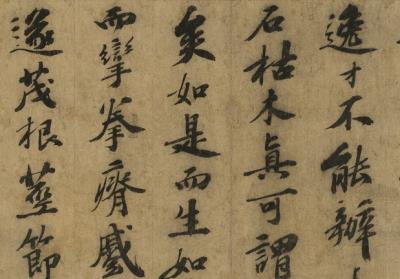 逸才不能辦
石枯木真可謂
矣如是而生如
而攣拳瘠蹙
遂茂根莖節